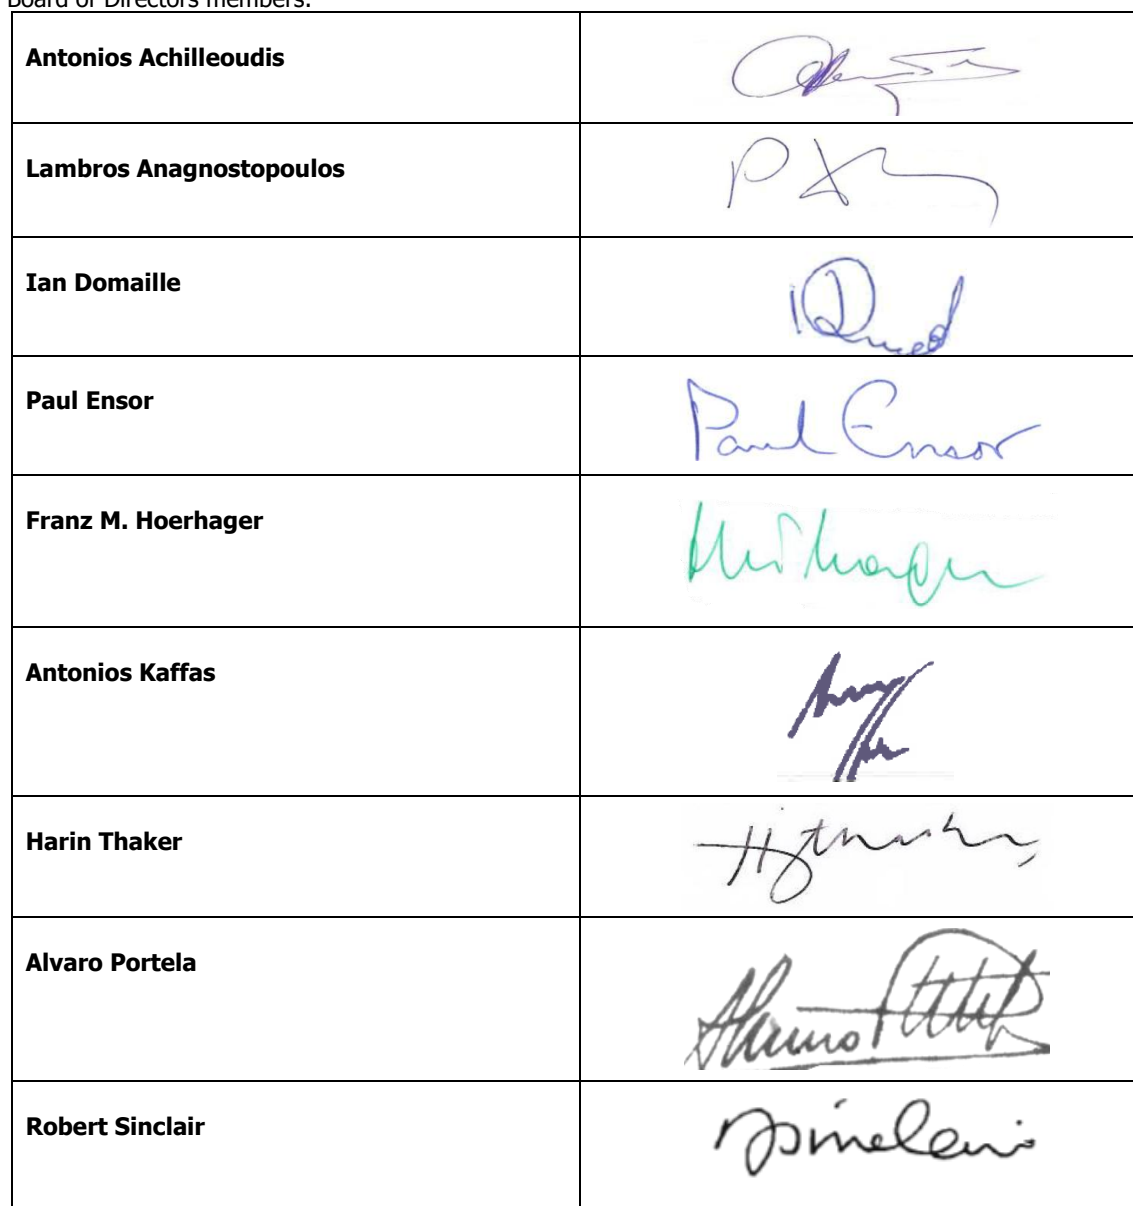 Board of Directors members:
Antonios Achilleoudis
Lambros Anagnostopoulos
Ian Domaille
Paul Ensor
Paul Ensor
Franz M. Hoerhager
Antonios Kaffas
Harin Thaker
Alvaro Portela
Robert Sinclair